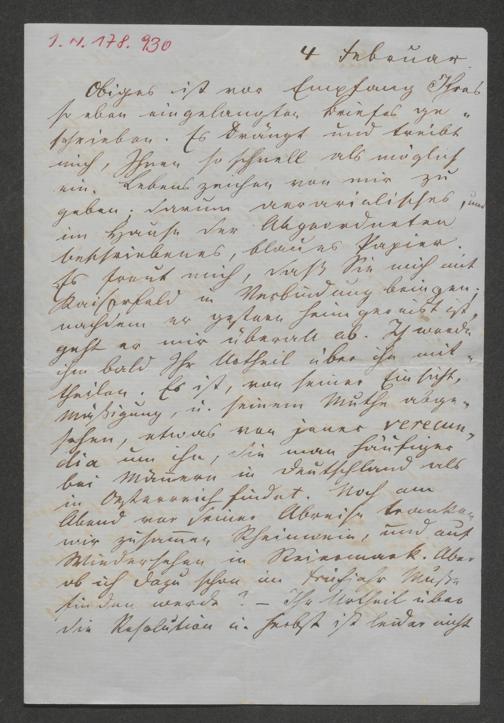 I. N. 178.930
4 Februar.
Obiges ist vor Empfang Ihres
so eben eingelangten Briefes ge-
schrieben. Es drängt und treibt
mich, Ihnen so schnell als möglich
ein Lebenszeichen von mir zu
geben; darum aerarialisches, und
im Hause der Abgeordneten
beschriebenes, blaues Papier.
Es freut mich, daß Sie mich mit
Kaiserfeld in Verbindung bringen;
nachdem er gestern heimgereist ist,
geht er mir überall ab. Ich werde
ihm bald Ihr Urtheil über ihn mit-
theilen. Es ist, von seiner Einsicht,
Mäßigung, u. seinem Muthe abge-
sehen, etwas von jener verecun-
dia um ihn, die man häufiger
bei Männern in Deutschland als
in Oesterreich findet. Noch am
Abend vor seiner Abreise tranken
wir zusamen Rheinwein, und auf
Wiedersehen in Steiermark. Aber
ob ich dazu schon im Frühjahr Muße
finden werde? – Ihr Urtheil über
die Resolution u. Herbst ist leider nicht